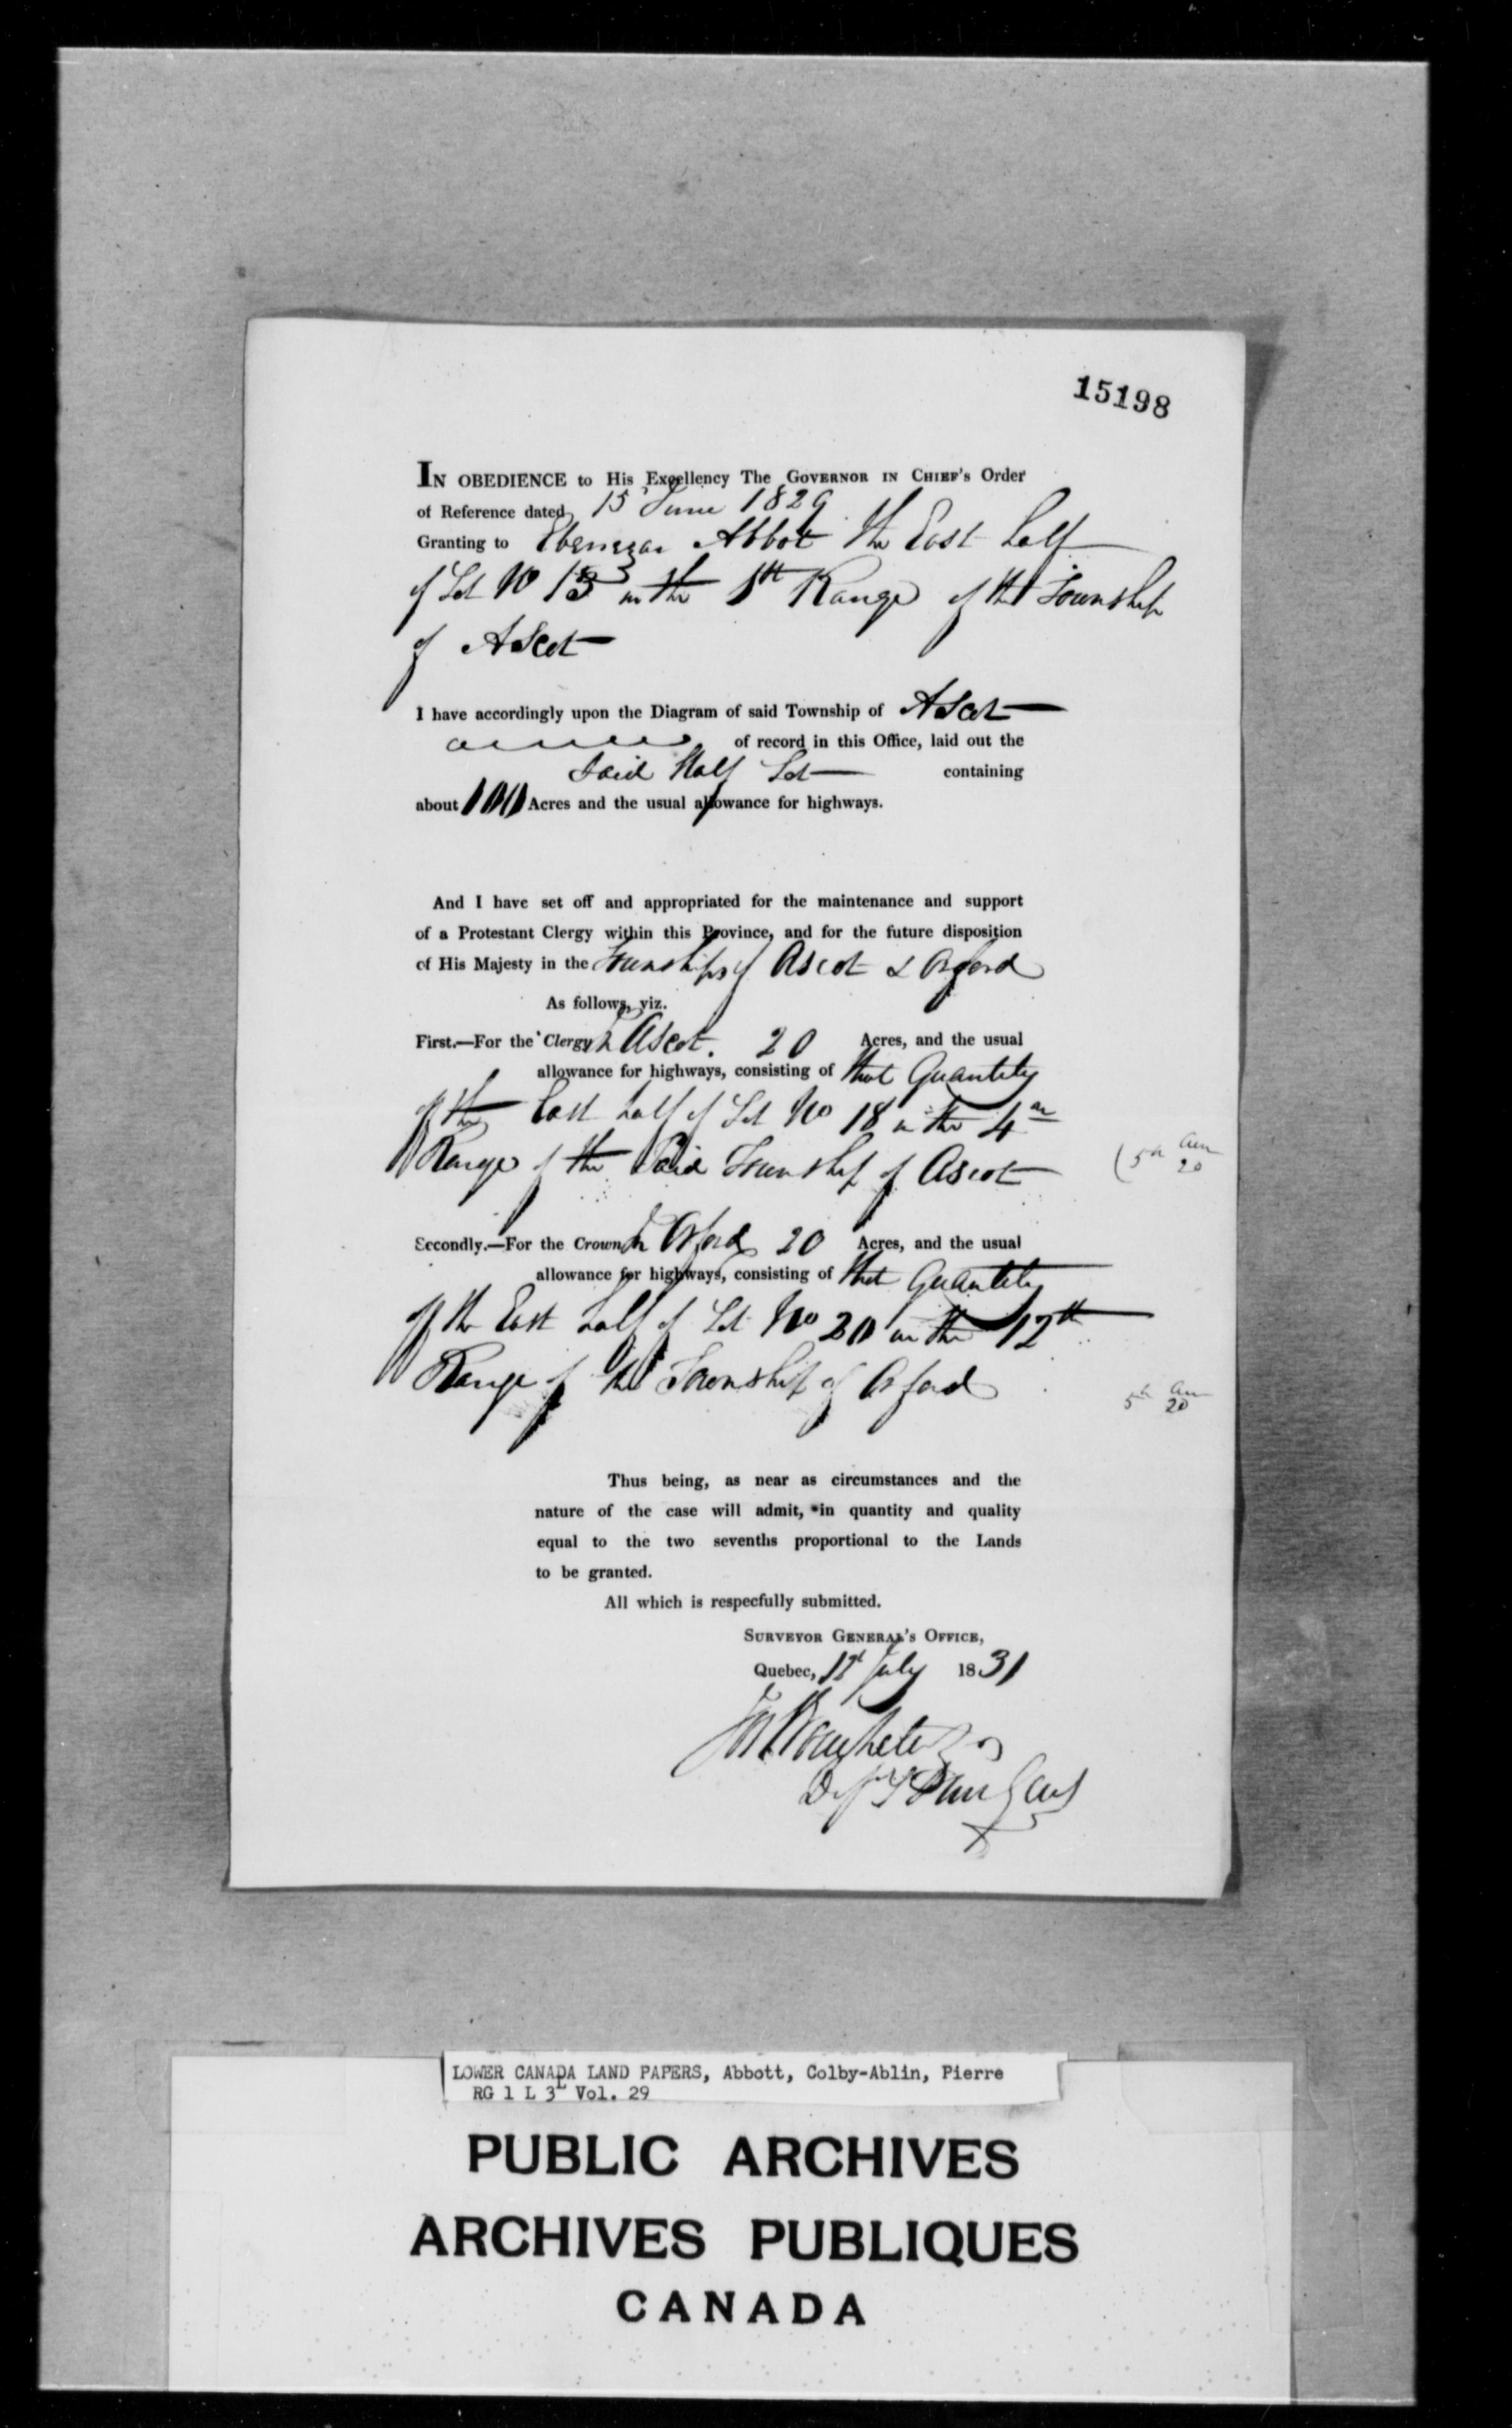 15198
IN OBEDIENCE to His Excellency The GOVERNOR IN CHIEF's Order
of Reference dated 15 June 1829
Granting to Ebenezar Abbot the East half
of Lot No 13 in the Range of the Township
of Ascot
I have accordingly upon the Diagram of said Township of Ascot
of record in this Office, laid out the
Said Half Lot containing
about 100 Acres and the usual allowance for highways.
And I have set off and appropriated for the maintenance and support
of a Protestant Clergy within this Province, and for the future disposition
of His Majesty in the Townships of Ascot & Orford
As follows, viz.
First.—For the Clergy In Ascot. 20 Acres, and the usual
allowance for highways, consisting of that Quantity
of the East half of Lot No 18 in the 4th
Range of the Said Township of Ascot
(5th 20
Secondly.—For the Crown In Orford 20 Acres, and the usual
allowance for highways, consisting of that Quantity
of the East half of Lot No 20 in the 12th
Range of the Township of Orford
5th 20
Thus being, as near as circumstances and the
nature of the case will admit, in quantity and quality
equal to the two sevenths proportional to the Lands
to be granted.
All which is respecfully submitted.
SURVEYOR GENERAL's OFFICE,
Quebec, July 1831
Jos Bouchette
LOWER CANADA LAND PAPERS, Abbott, Colby-Ablin, Pierre
RG 1 L 3L Vol. 29
PUBLIC ARCHIVES
ARCHIVES PUBLIQUES
CANADA